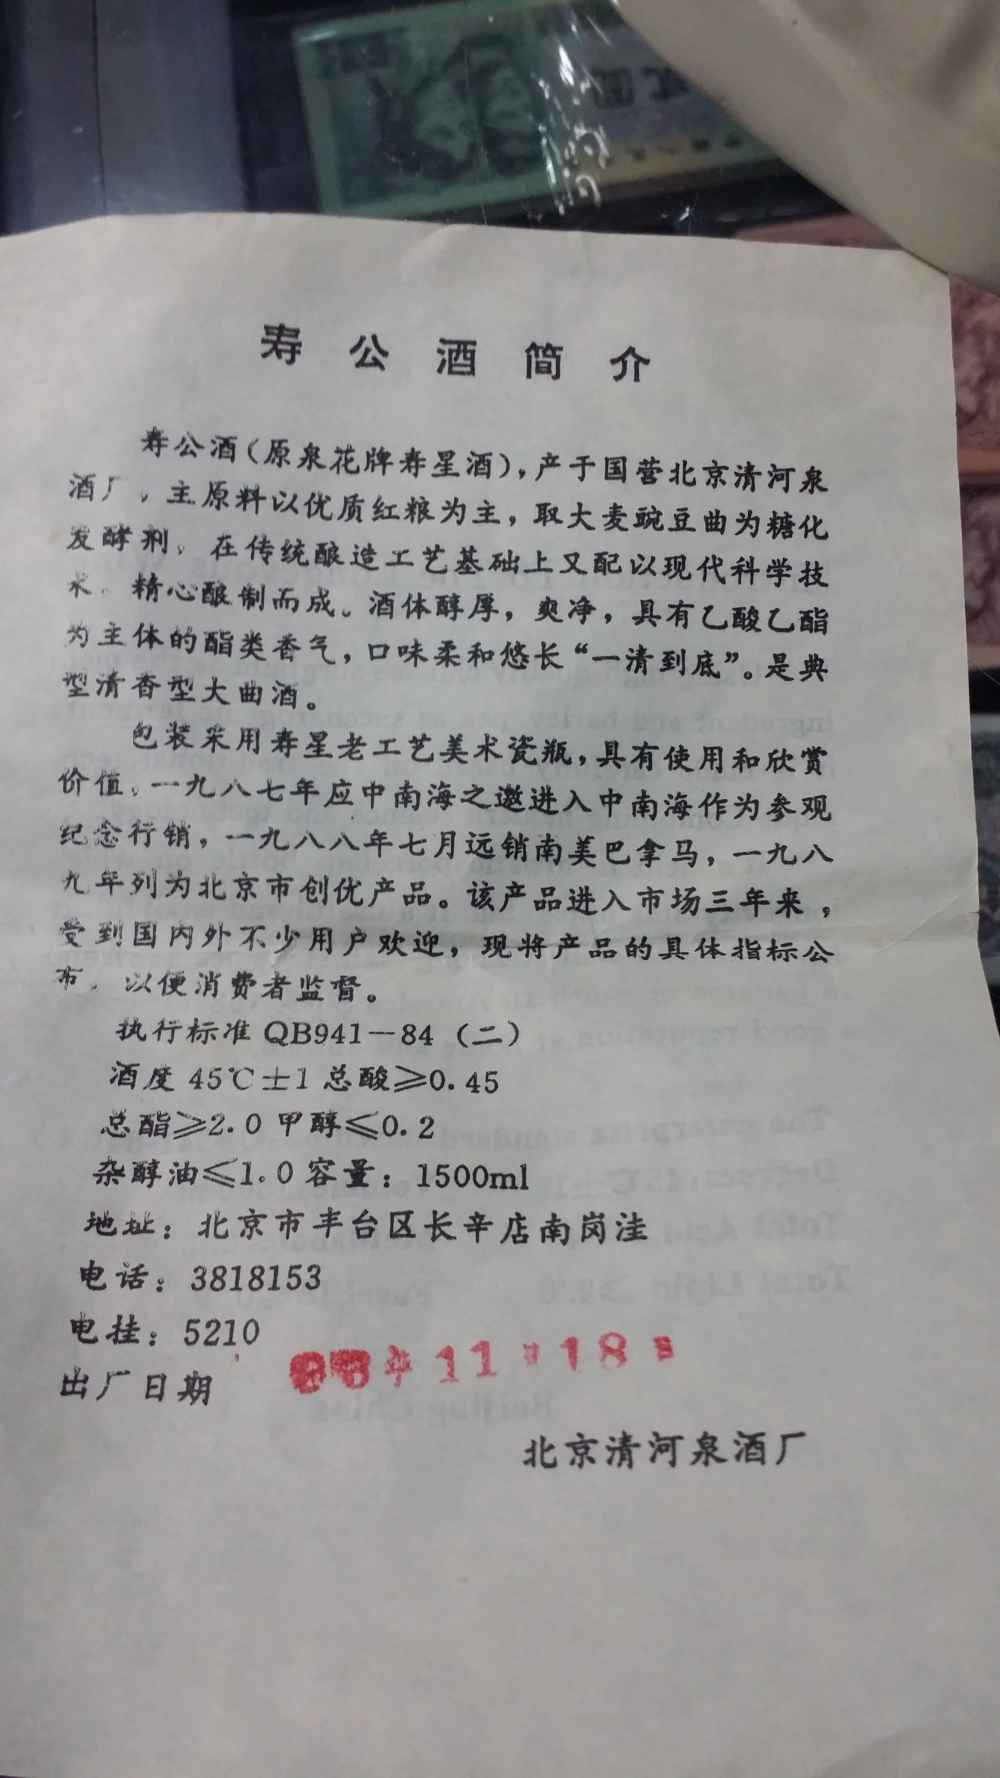 寿公酒简介
寿公酒(原泉花牌寿星酒),产于国营北京清河泉
酒厂,主原料以优质红粮为主,取大麦豌豆曲为糖化
发酵剂,在传统酿造工艺基础上又配以现代科学技
术,精心酿制而成。酒体醇厚,爽净,具有乙酸乙酯
为主体的酯类香气,口味柔和悠长“一清到底”。是典
型清香型大曲酒。
包装采用寿星老工艺美术瓷瓶,具有使用和欣赏
价值,一九八七年应中南海之邀进入中南海作为参观
纪念行销,一九八八年七月远销南美巴拿马,一九八
九年列为北京市创优产品。该产品进入市场三年来,
受到国内外不少用户欢迎,现将产品的具体指标公
布,以便消费者监督。
执行标准QB941—84(二)
酒度45℃±1总酸≥0.45
总酯≥2.0甲醇≤0.2
杂醇油≤1.0容量:1500ml
地址:北京市丰台区长辛店南岗洼
电话:3818153
电挂:5210
出厂日期 年11月18日
北京清河泉酒厂